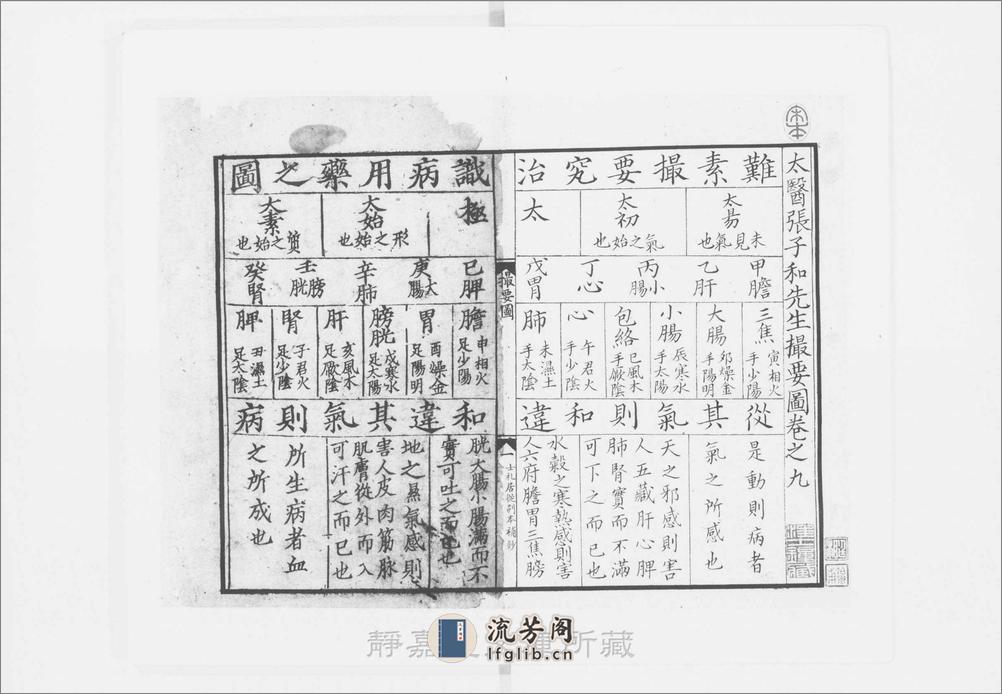 太醫張子和先生撮要圖卷之九
難素撮要究治
識病用藥之圖
太易 未見氣也
太初 氣之始也
太極
太始 形之始也
太素 質之始也
甲膽
乙肝
丙小腸
丁心
戊胃
己脾
庚大腸
辛肺
壬膀胱
癸腎
三焦 寅相火 手少陽
大腸 卯燥金 手陽明
小腸 辰寒水 手太陽
包絡 巳風木 手厥陰
心 午君火 手少陰
肺 未濕土 手太陰
膽 申相火 足少陽
胃 酉燥金 足陽明
膀胱 戌寒水 足太陽
肝 亥風木 足厥陰
腎 子君火 足少陰
脾 丑濕土 足太陰
從其氣則和違
和違其氣則病
是動則病者
氣之所感也
天之邪感則害
人五藏肝心脾
肺腎實而不滿
可下之而已也
水穀之寒熱感則害
人六府膽胃三焦膀
撮要圖
一
士礼居從刻本補鈔
胱大腸小腸滿而不
實可吐之而已也
地之濕氣感則
害人皮肉筋脉
肌膚從外而入
可汗之而已也
所生病者血
之所成也
靜嘉 所藏
流芳阁
lfglib.cn